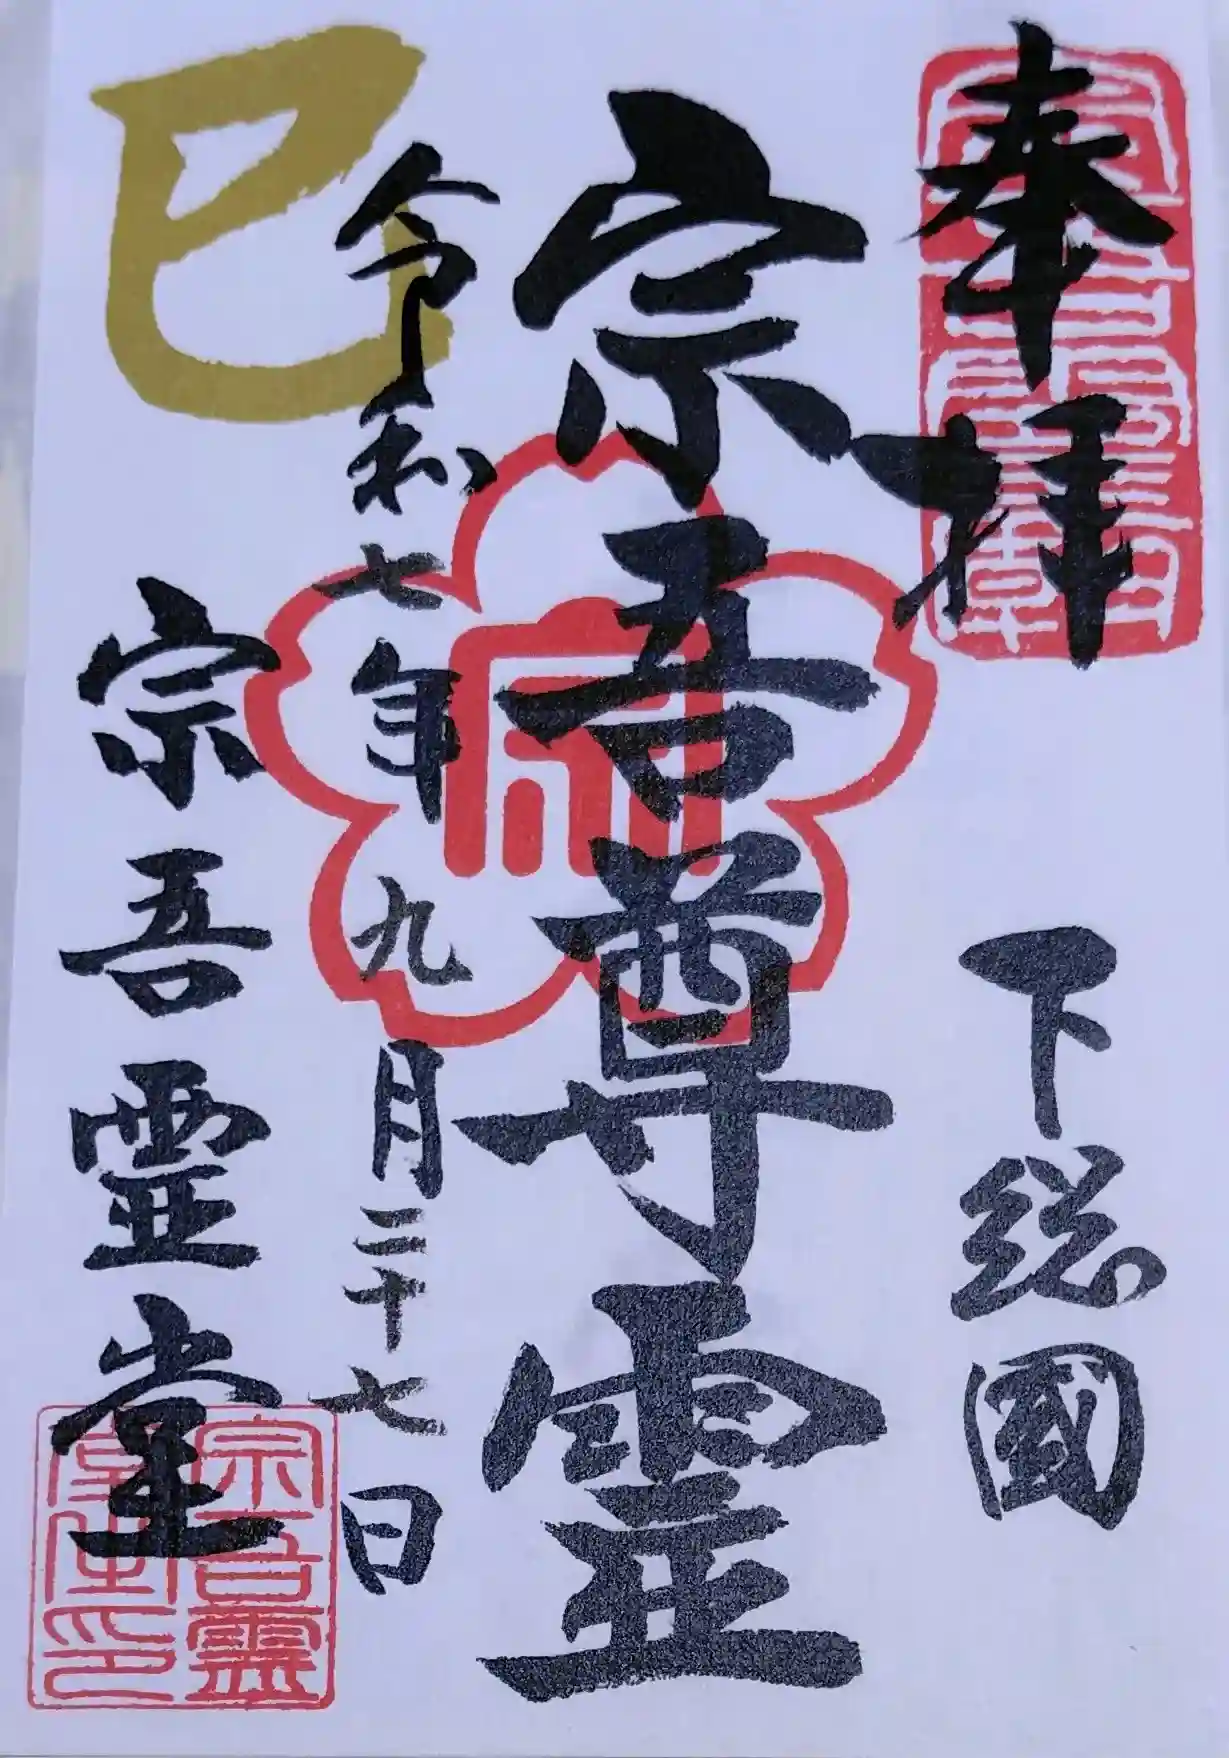 奉拝
下総國
宗吾尊霊
令和七年九月二十七日
巳
宗吾霊堂
宗吾靈
堂主印